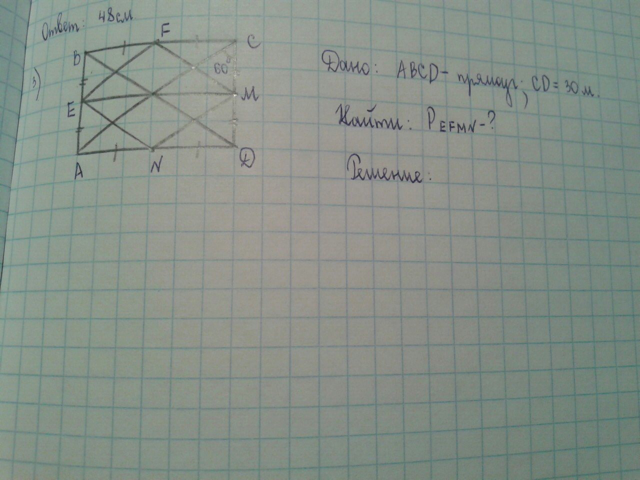 Ответ: 48см
3)
B F C
60°
E M
A N D
Дано: ABCD - прямоуг; CD = 30 м.
Найти: P EFMN - ?
Решение: